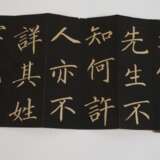 先生不
知何許
人亦不
詳其姓